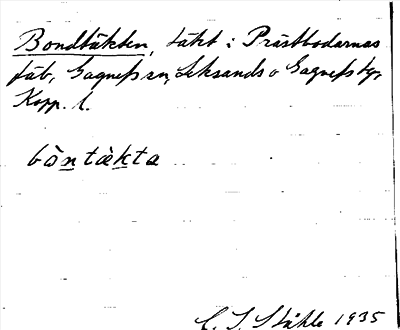 Bondtäkten, täkt i Prästbodarnas
fäb, Gagnefs sn, Leksands o Gagnefs tg,
Kopp. l.
bo̊ntäkta
C. I. Ståhle 1935